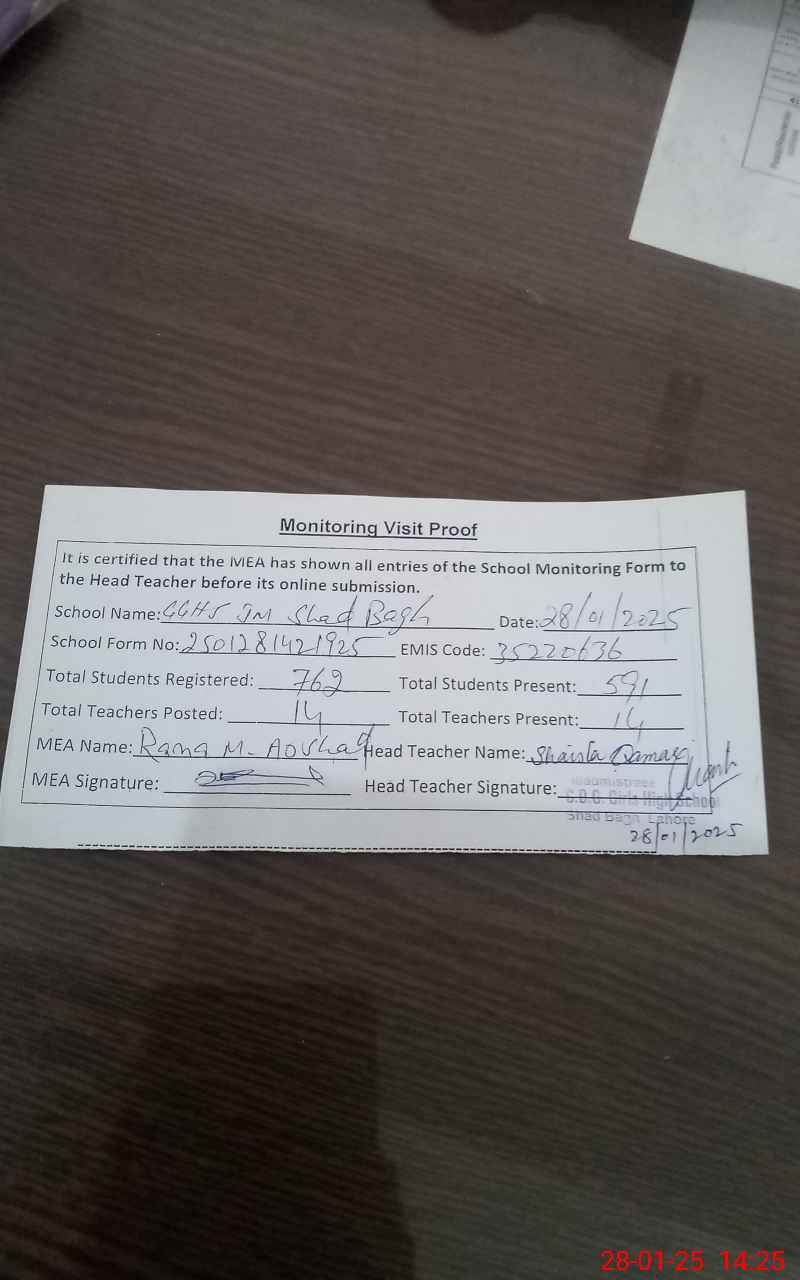 Monitoring Visit Proof
It is certified that the MEA has shown all entries of the School Monitoring Form to
the Head Teacher before its online submission.
School Name: GGHS JM Shad Bagh Date: 28/01/2025
School Form No: 2501281421925 EMIS Code: 35220636
Total Students Registered: 762 Total Students Present: 591
Total Teachers Posted: 14 Total Teachers Present: 14
MEA Name: Rana M. Head Teacher Name: Shaista
MEA Signature: Head Teacher Signature:
Headmistress
Girls High School
Shad Bagh Lahore
28/01/2025
28-01-25 14:25